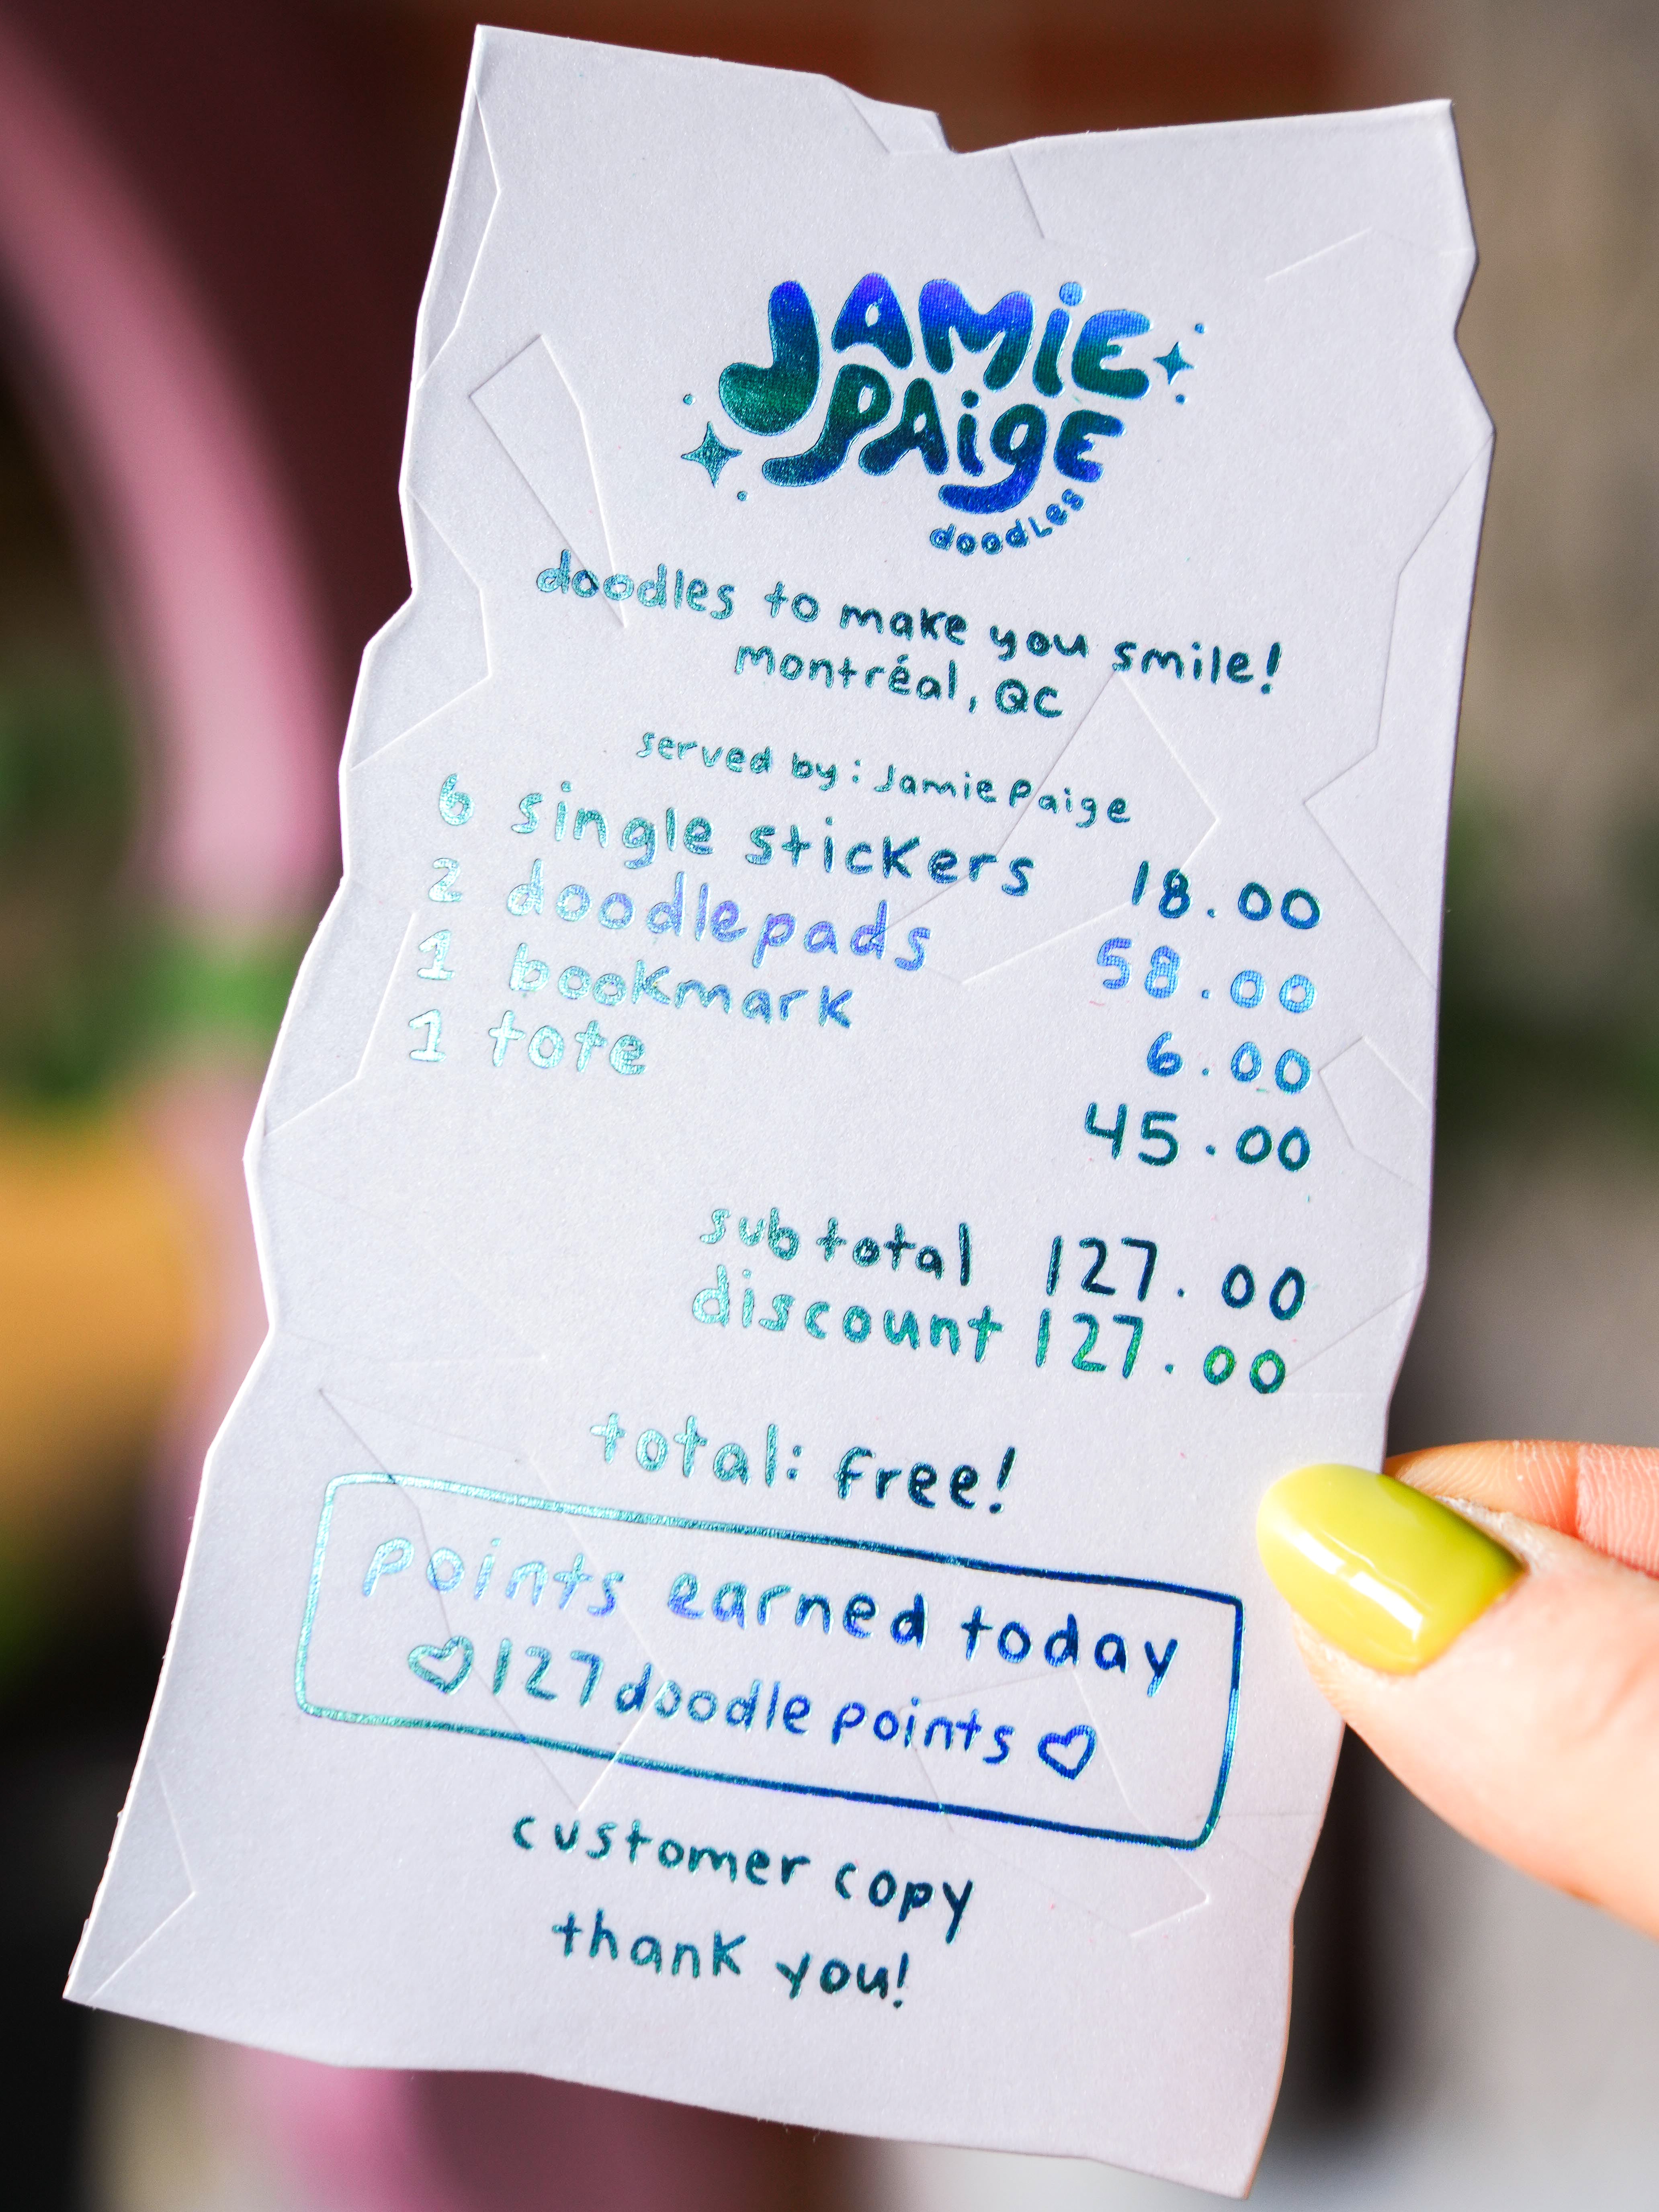 JAMiE
PAigE
doodles
doodles to make you smile!
montréal, QC
served by: Jamie Paige
6 single stickers 18.00
2 doodlepads 58.00
1 bookmark 6.00
1 tote 45.00
subtotal 127.00
discount 127.00
total: free!
points earned today
♡ 127 doodle points ♡
customer copy
thank you!